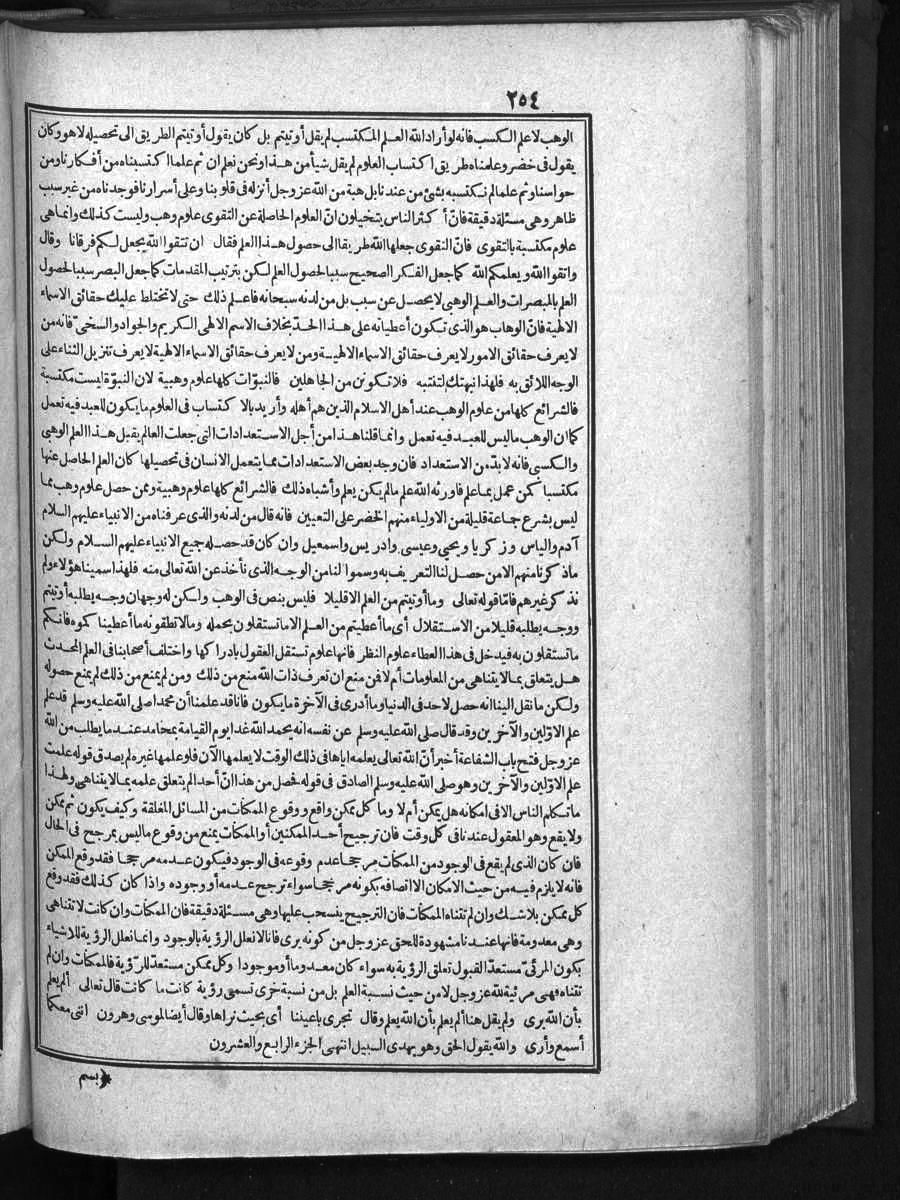 ٢٥٤
الوهب لا علم الكسب فانه لو أراد الله العلم المكتسب لم يقل أوتيتم بل كان يقول أوتيتم الطريق الى تحصيله لا هو وكان
يقول فى خضر وعلمناه طريق اكتساب العلوم لم يقل شيأ من هذا ونحن نعلم ان ثم علما اكتسبناه من أفكارنا ومن
حواسنا وثم علما لم نكتسبه بشئ من عندنا بل هبة من الله عز وجل أنزله فى قلوبنا وعلى أسرارنا فوجدناه من غير سبب
ظاهر وهى مسئلة دقيقة فانّ أكثر الناس يتخيلون انّ العلوم الحاصلة عن التقوى علوم وهب وليست كذلك وانما هى
علوم مكتسبة بالتقوى فانّ التقوى جعلها الله طريقا الى حصول هذا العلم فقال ان تتقوا الله يجعل لكم فرقانا وقال
واتقوا الله ويعلمكم الله كما جعل الفكر الصحيح سببا لحصول العلم لكن بترتيب المقدمات كما جعل البصر سببا لحصول
العلم بالمبصرات والعلم الوهبى لا يحصل عن سبب بل من لدنه سبحانه فاعلم ذلك حتى لا تختلط عليك حقائق الاسماء
الالهية فانّ الوهاب هو الذى تكون أعطياته على هذا الحدّ بخلاف الاسم الالهى الكريم والجواد والسخىّ فانه من
لا يعرف حقائق الامور لا يعرف حقائق الاسماء الالهية ومن لا يعرف حقائق الاسماء الالهية لا يعرف تنزيل الثناء على
الوجه اللائق به فلهذا نبهتك لتنتبه فلا تكونن من الجاهلين فالنبوّات كلها علوم وهبية لان النبوّة ليست مكتسبة
فالشرائع كلها من علوم الوهب عند أهل الاسلام الذين هم أهله وأريد بالاكتساب فى العلوم ما يكون للعبد فيه تعمل
كما ان الوهب ما ليس للعبد فيه تعمل وانما قلنا هذا من أجل الاستعدادات التى جعلت العالم يقبل هذا العلم الوهبى
والكسبى فانه لا بدّ من الاستعداد فان وجد بعض الاستعدادات مما يتعمل الانسان فى تحصيلها كان العلم الحاصل عنها
مكتسبا كمن عمل بما علم فاورثه الله علم ما لم يكن يعلم وأشباه ذلك فالشرائع كلها علوم وهبية وممن حصل علوم وهب مما
ليس بشرع جماعة قليلة من الاولياء منهم الخضر على التعيين فانه قال من لدنه والذى عرفناه من الانبياء عليهم السلام
آدم والياس وزكريا ويحيى وعيسى وادريس واسمعيل وان كان قد حصله جميع الانبياء عليهم السلام ولكن
ما ذكرنا منهم الا من حصل لنا التعريف به وسموا لنا من الوجه الذى نأخذ عن الله تعالى منه فلهذا سمينا هؤلاء ولم
نذكر غيرهم فامّا قوله تعالى وما أوتيتم من العلم الا قليلا فليس بنص فى الوهب ولكن له وجهان وجه يطلبه أوتيتم
ووجه يطلبه قليلا من الاستقلال أى ما أعطيتم من العلم الا ما تستقلون بحمله وما لا تطيقونه ما أعطينا كموه فانكم
ما تستقلون به فيدخل فى هذا العطاء علوم النظر فانها علوم تستقل العقول بادراكها واختلف أصحابنا فى العلم المحدث
هل يتعلق بما لا يتناهى من المعلومات أم لا فمن منع ان تعرف ذات الله منع من ذلك ومن لم يمنع من ذلك لم يمنع حصوله
ولكن ما نقل الينا انه حصل لاحد فى الدنيا وما أدرى فى الآخرة ما يكون فانا قد علمنا أن محمدا صلى الله عليه وسلم قد علم
علم الاوّلين والآخرين وقد قال صلى الله عليه وسلم عن نفسه انه يحمد الله غدا يوم القيامة بمحامد عند ما يطلب من الله
عز وجل فتح باب الشفاعة أخبر أنّ الله تعالى يعلمه اياها فى ذلك الوقت لا يعلمها الآن فلو علمها غيره لم يصدق قوله علمت
علم الاوّلين والآخرين وهو صلى الله عليه وسلم الصادق فى قوله فحصل من هذا انّ أحدا لم يتعلق علمه بما لا يتناهى ولهذا
ما تكلم الناس الا فى امكانه هل يمكن أم لا وما كل ممكن واقع ووقوع الممكنات من المسائل المغلقة وكيف يكون ثم ممكن
ولا يقع وهو المعقول عندنا فى كل وقت فان ترجيح أحد الممكنين أو الممكنات يمنع من وقوع ما ليس بمرجح فى الحال
فان كان الذى لم يقع فى الوجود من الممكنات مرجحا عدم وقوعه فى الوجود فيكون عدمه مرجحا فقد وقع الممكن
فانه لا يلزم فيه من حيث الامكان الا اتصافه بكونه مرجحا سواء ترجح عدمه أو وجوده واذا كان كذلك فقد وقع
كل ممكن بلا شك وان لم تتناه الممكنات فان الترجيح ينسحب عليها وهى مسئلة دقيقة فان الممكنات وان كانت لا تتناهى
وهى معدومة فانها عندنا مشهودة للحق عز وجل من كونه يرى فانا لا نعلل الرؤية بالوجود وانما نعلل الرؤية للاشياء
بكون المرئىّ مستعدّا لقبول تعلق الرؤية به سواء كان معدوما أو موجودا وكل ممكن مستعدّ للرّؤية فالممكنات وان لم
تتناه فهى مرئية لله عز وجل لا من حيث نسبة العلم بل من نسبة أخرى تسمى رؤية كانت ما كانت قال تعالى ألم يعلم
بأن الله يرى ولم يقل هنا ألم يعلم بأن الله يعلم وقال تجرى باعيننا أى بحيث نراها وقال أيضا لموسى وهرون اننى معكما
أسمع وأرى والله يقول الحق وهو يهدى السبيل انتهى الجزء الرابع والعشرون
بسم